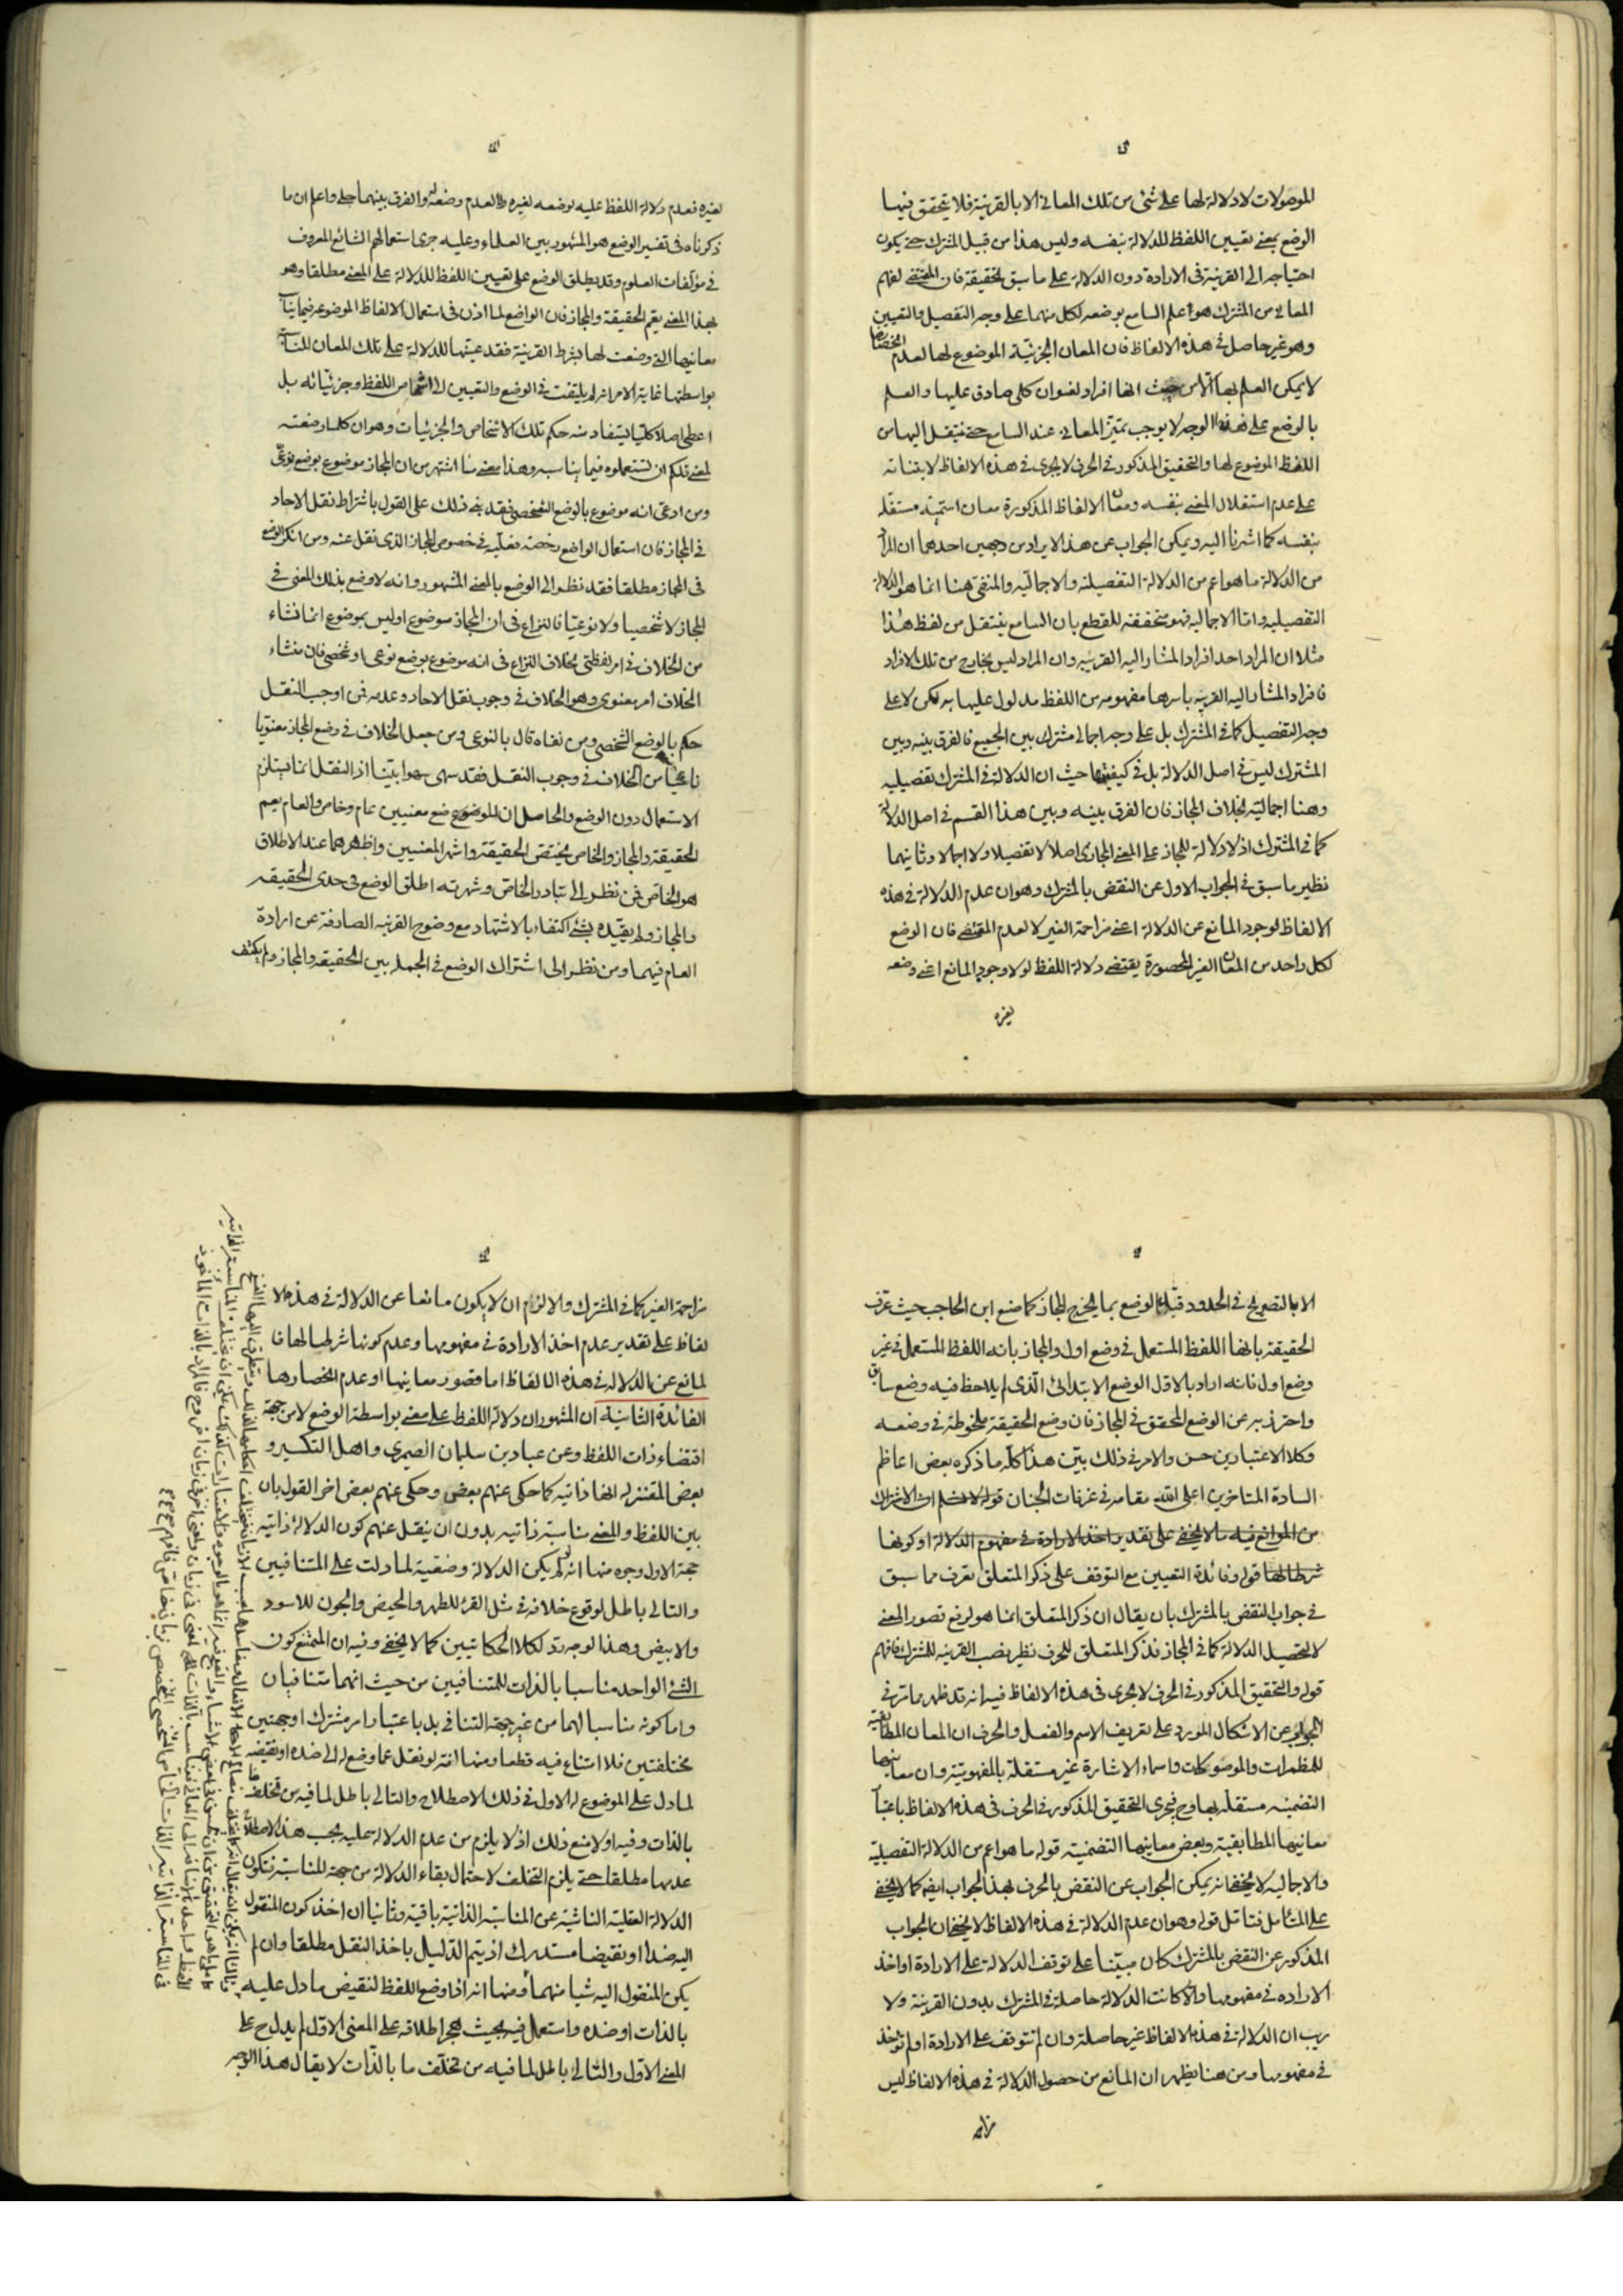 الموصولات لا دلالة لها على شئ من تلك المعانى الا بالقرينة فلا يتحقق فيها
الوضع بمعنى تعيين اللفظ للدلالة بنفسه وليس هذا من قبيل المشترك حتى يكون
احتياجه الى القرينة فى الارادة دون الدلالة على ما سبق تحقيقه فان المقتضى لفهم
المعانى من المشترك هو علم السامع بوضعه لكل منها على وجه التفصيل والتعيين
وهو غير حاصل فى هذه الالفاظ فان المعان الجزئية الموضوع لها لعدم انحصارها
لا يمكن العلم بها الا من حيث انها افراد لعنوان كلى صادق عليها والعلم
بالوضع على هذا الوجه لا يوجب تميز المعانى عند السامع حتى ينتقل اليها من
اللفظ الموضوع لها والتحقيق المذكور فى الحرف لا يجرى فى هذه الالفاظ لابتنائه
على عدم استقلال المعنى بنفسه ومعان الالفاظ المذكورة معان اسمية مستقلة
بنفسه كما اشرنا اليه ويمكن الجواب عن هذا الايراد من وجهين احدهما ان المراد
من الدلالة ما هو اعم من الدلالة التفصيلية والاجمالية والمنفى هنا انما هو الدلالة
التفصيلية واما الاجمالية فهو متحققة للقطع بان السامع ينتقل من لفظ هذا
مثلا ان المراد احد افراد المشار اليه القريب وان المراد ليس بخارج من تلك الافراد
فافراد المشار اليه القريب باسرها مفهومه من اللفظ مدلول عليها به لكن لا على
وجه التفصيل كما فى المشترك بل على وجه اجمالى مشترك بين الجميع فالفرق بينه وبين
المشترك ليس فى اصل الدلالة بل فى كيفيتها حيث ان الدلالة فى المشترك تفصيليه
وهنا اجمالية بخلاف المجاز فان الفرق بينه وبين هذا القسم فى اصل الدلالة
كما فى المشترك اذ لا دلالة للمجاز على المعنى المجازى اصلا لا تفصيلا ولا اجمالا وثانيهما
نظير ما سبق فى الجواب الاول عن النقض بالمشترك وهو ان عدم الدلالة فى هذه
الالفاظ لوجود المانع عن الدلالة اعنى مزاحمة الغير لا لعدم المقتضى فان الوضع
لكل واحد من المعان الغير المحصورة يقتضى دلالة اللفظ لولا وجود المانع اعنى وضعه
لغيره
لغيره فعدم دلالة اللفظ عليه لوضعه لغيره لا لعدم وضعه له والفرق بينهما جلى واعلم ان ما
ذكرناه فى تفسير الوضع هو المشهور بين العلماء وعليه جرى استعمالهم الشائع المعروف
فى مؤلفات العلوم وقد يطلق الوضع على تعيين اللفظ للدلالة على المعنى مطلقا وهو
بهذا المعنى يعم الحقيقة والمجاز فان الواضع لما اذن فى استعمال الالفاظ الموضوعة فيما يناسب
معانيها التى وضعت لها بشرط القرينة فقد عينها للدلالة على تلك المعان المناسبة
بواسطتها غاية الامر انه لم يلتفت فى الوضع والتعيين الى اشخاص اللفظ وجزئياته بل
اعطى اصلا كليا يستفاد منه حكم تلك الاشخاص والجزئيات وهو ان كلما وضعته
لمعنى فلكم ان تستعملوه فيما يناسبه وهذا معنى ما اشتهر من ان المجاز موضوع بوضع نوعى
ومن ادعى انه موضوع بالوضع الشخصى فقد بنى ذلك على القول باشتراط نقل الاحاد
فى المجاز فان استعمال الواضع رخصة فعلية فى خصوص المجاز الذى نقل عنه ومن انكر الوضع
فى المجاز مطلقا فقد نظر الى الوضع بالمعنى المشهور وانه لا وضع بذلك المعنى فى
المجاز لا شخصيا ولا نوعيا فالنزاع فى ان المجاز موضوع او ليس بموضوع انما نشاء
من الخلاف فى امر لفظى بخلاف النزاع فى انه موضوع بوضع نوعى او شخصى فان منشاء
الخلاف امر معنوى وهو الخلاف فى وجوب نقل الاحاد وعدمه فمن اوجب النقل
حكم بالوضع الشخصى ومن نفاه قال بالنوعى ومن جعل الخلاف فى وضع المجاز معنويا
ناشئا من الخلاف فى وجوب النقل فقد سهى سهوا بينا اذ النقل انما يستلزم
الاستعمال دون الوضع والحاصل ان للموضوع معنيين عام وخاص والعام يعم
الحقيقة والمجاز والخاص يختص الحقيقة واشهر المعنيين واظهرهما عند الاطلاق
هو الخاص فمن نظر الى تبادر الخاص وشهرته اطلق الوضع فى حدى الحقيقه
والمجاز ولم يقيده بشئ اكتفاء بالاشتهار مع وضوح القرينه الصارفة عن ارادة
العام فيهما ومن نظر الى اشتراك الوضع فى الجمله بين الحقيقه والمجاز ولم يكتف
الا بالتصريح فى الحدود قيد الوضع بما يخرج المجاز كما صنع ابن الحاجب حيث عرف
الحقيقة بانها اللفظ المستعمل فى وضع اول والمجاز بانه اللفظ المستعمل فى غير
وضع اول فانه اراد بالاول الوضع الابتدائى الذى لم يلاحظ فيه وضع سابق
واحترز به عن الوضع المحقق فى المجاز فان وضع الحقيقة ملحوظة فى وضعه
وكلا الاعتبارين حسن والامر فى ذلك بين هذا كله ما ذكره بعض اعاظم
السادة المتاخرين اعلى الله مقامه فى غرفات الجنان قوله
من الموانع فيه ما لا يخفى على تقدير اخذ الارادة فى مفهوم الدلالة او كونها
شرطا لها قوله وفائدة التعيين مع التوقف على ذكر المتعلق تعرف مما سبق
فى جواب النقض بالمشترك بان يقال ان ذكر المتعلق انما هو لرفع تصور المعنى
لا لتحصيل الدلالة كما فى المجاز فذكر المتعلق للحرف نظير نصب القرينه للمشترك فافهم
قوله والتحقيق المذكور فى الحرف لا يجرى فى هذه الالفاظ فيه انه قد ظهر مما مر فى
الجواب عن الاشكال المورد على تعريف الاسم والفعل والحرف ان المعان المطابقية
للمظمرات والموصولات واسماء الاشارة غير مستقلة بالمفهومية وان معانيها
التضمنيه مستقله بها وح فيجرى التحقيق المذكور فى الحرف فى هذه الالفاظ باعتبار
معانيها المطابقية وبعض معانيها التضمنية قوله ما هو اعم من الدلالة التفصيلية
والاجماليه لا يخفى انه يمكن الجواب عن النقض بالحرف بهذا الجواب ايضا كما لا يخفى
على المتامل فتامل قوله وهو ان عدم الدلالة فى هذه الالفاظ لا يخفى ان الجواب
المذكور عن النقض بالمشترك كان مبتنيا على توقف الدلالة على الارادة او اخذ
الاراده فى مفهومها والا كانت الدلالة حاصلة فى المشترك بدون القرينة ولا
ريب ان الدلالة فى هذه الالفاظ غير حاصلة وان لم تتوقف على الارادة او لم تؤخذ
فى مفهومها ومن هنا يظهر ان المانع من حصول الدلالة فى هذه الالفاظ ليس
مزاحمة
مزاحمة الغير كما فى المشترك والا لزم ان لا يكون مانعا عن الدلالة فى هذه الا
لفاظ على تقدير عدم اخذ الارادة فى مفهومها وعدم كونها شرطا لها فا
لمانع عن الدلاله فى هذه الالفاظ اما قصور معانيها او عدم انحصارها
الفائدة الثانية ان المشهور ان دلالة اللفظ على معنى بواسطة الوضع لا من جهة
اقتضاء ذات اللفظ وعن عباد بن سليمان الصيمرى واهل التكسير و
بعض المعتزله انها ذاتيه كما حكى عنهم بعض وحكى عنهم بعض اخر القول بان
بين اللفظ والمعنى مناسبة ذاتيه بدون ان ينقل عنهم كون الدلالة ذاتيه
حجة الاول وجوه منها انه لو لم يكن الدلالة وضعية لما دلت على المتنافيين
والتالى باطل لوقوع خلافه فى مثل القرء للطهر والحيض والجون للاسود
والابيض وهذا لوجه يرد لكلا الحكايتين كما لا يخفى وفيه ان الممتنع كون
الشئ الواحد مناسبا بالذات للمتنافيين من حيث انهما متنافيان
واما كونه مناسبا لهما من غير جهة التنافى بل باعتبار امر مشترك او جهتين
مختلفتين فلا امتناع فيه قطعا ومنها انه لو نقل عما وضع له الى ضده او نقيضه
لما دل على الموضوع له الاول فى ذلك الاصطلاح والتالى باطل لما فيه من تخلف ما
بالذات وفيه اولا منع ذلك اذ لا يلزم من عدم الدلالة عليه بحسب هذا الاصطلاح
عدمها مطلقا حتى يلزم التخلف لاحتمال بقاء الدلالة من جهة المناسبة فتكون
الدلالة العقلية الناشية عن المناسبة الذاتية باقية وثانيا ان اخذ كون المنقول
اليه ضدا او نقيضا مستدرك اذ يتم الدليل باخذ النقل مطلقا وان لم
يكن المنقول اليه شيا منهما ومنها انه اذا وضع اللفظ لنقيض ما دل عليه
بالذات او ضده واستعمل فيه بحيث هجر اطلاقه على المعنى الاول لم يدل ح على
المعنى الاول والتالى باطل لما فيه من تخلف ما بالذات لا يقال هذا الوجه